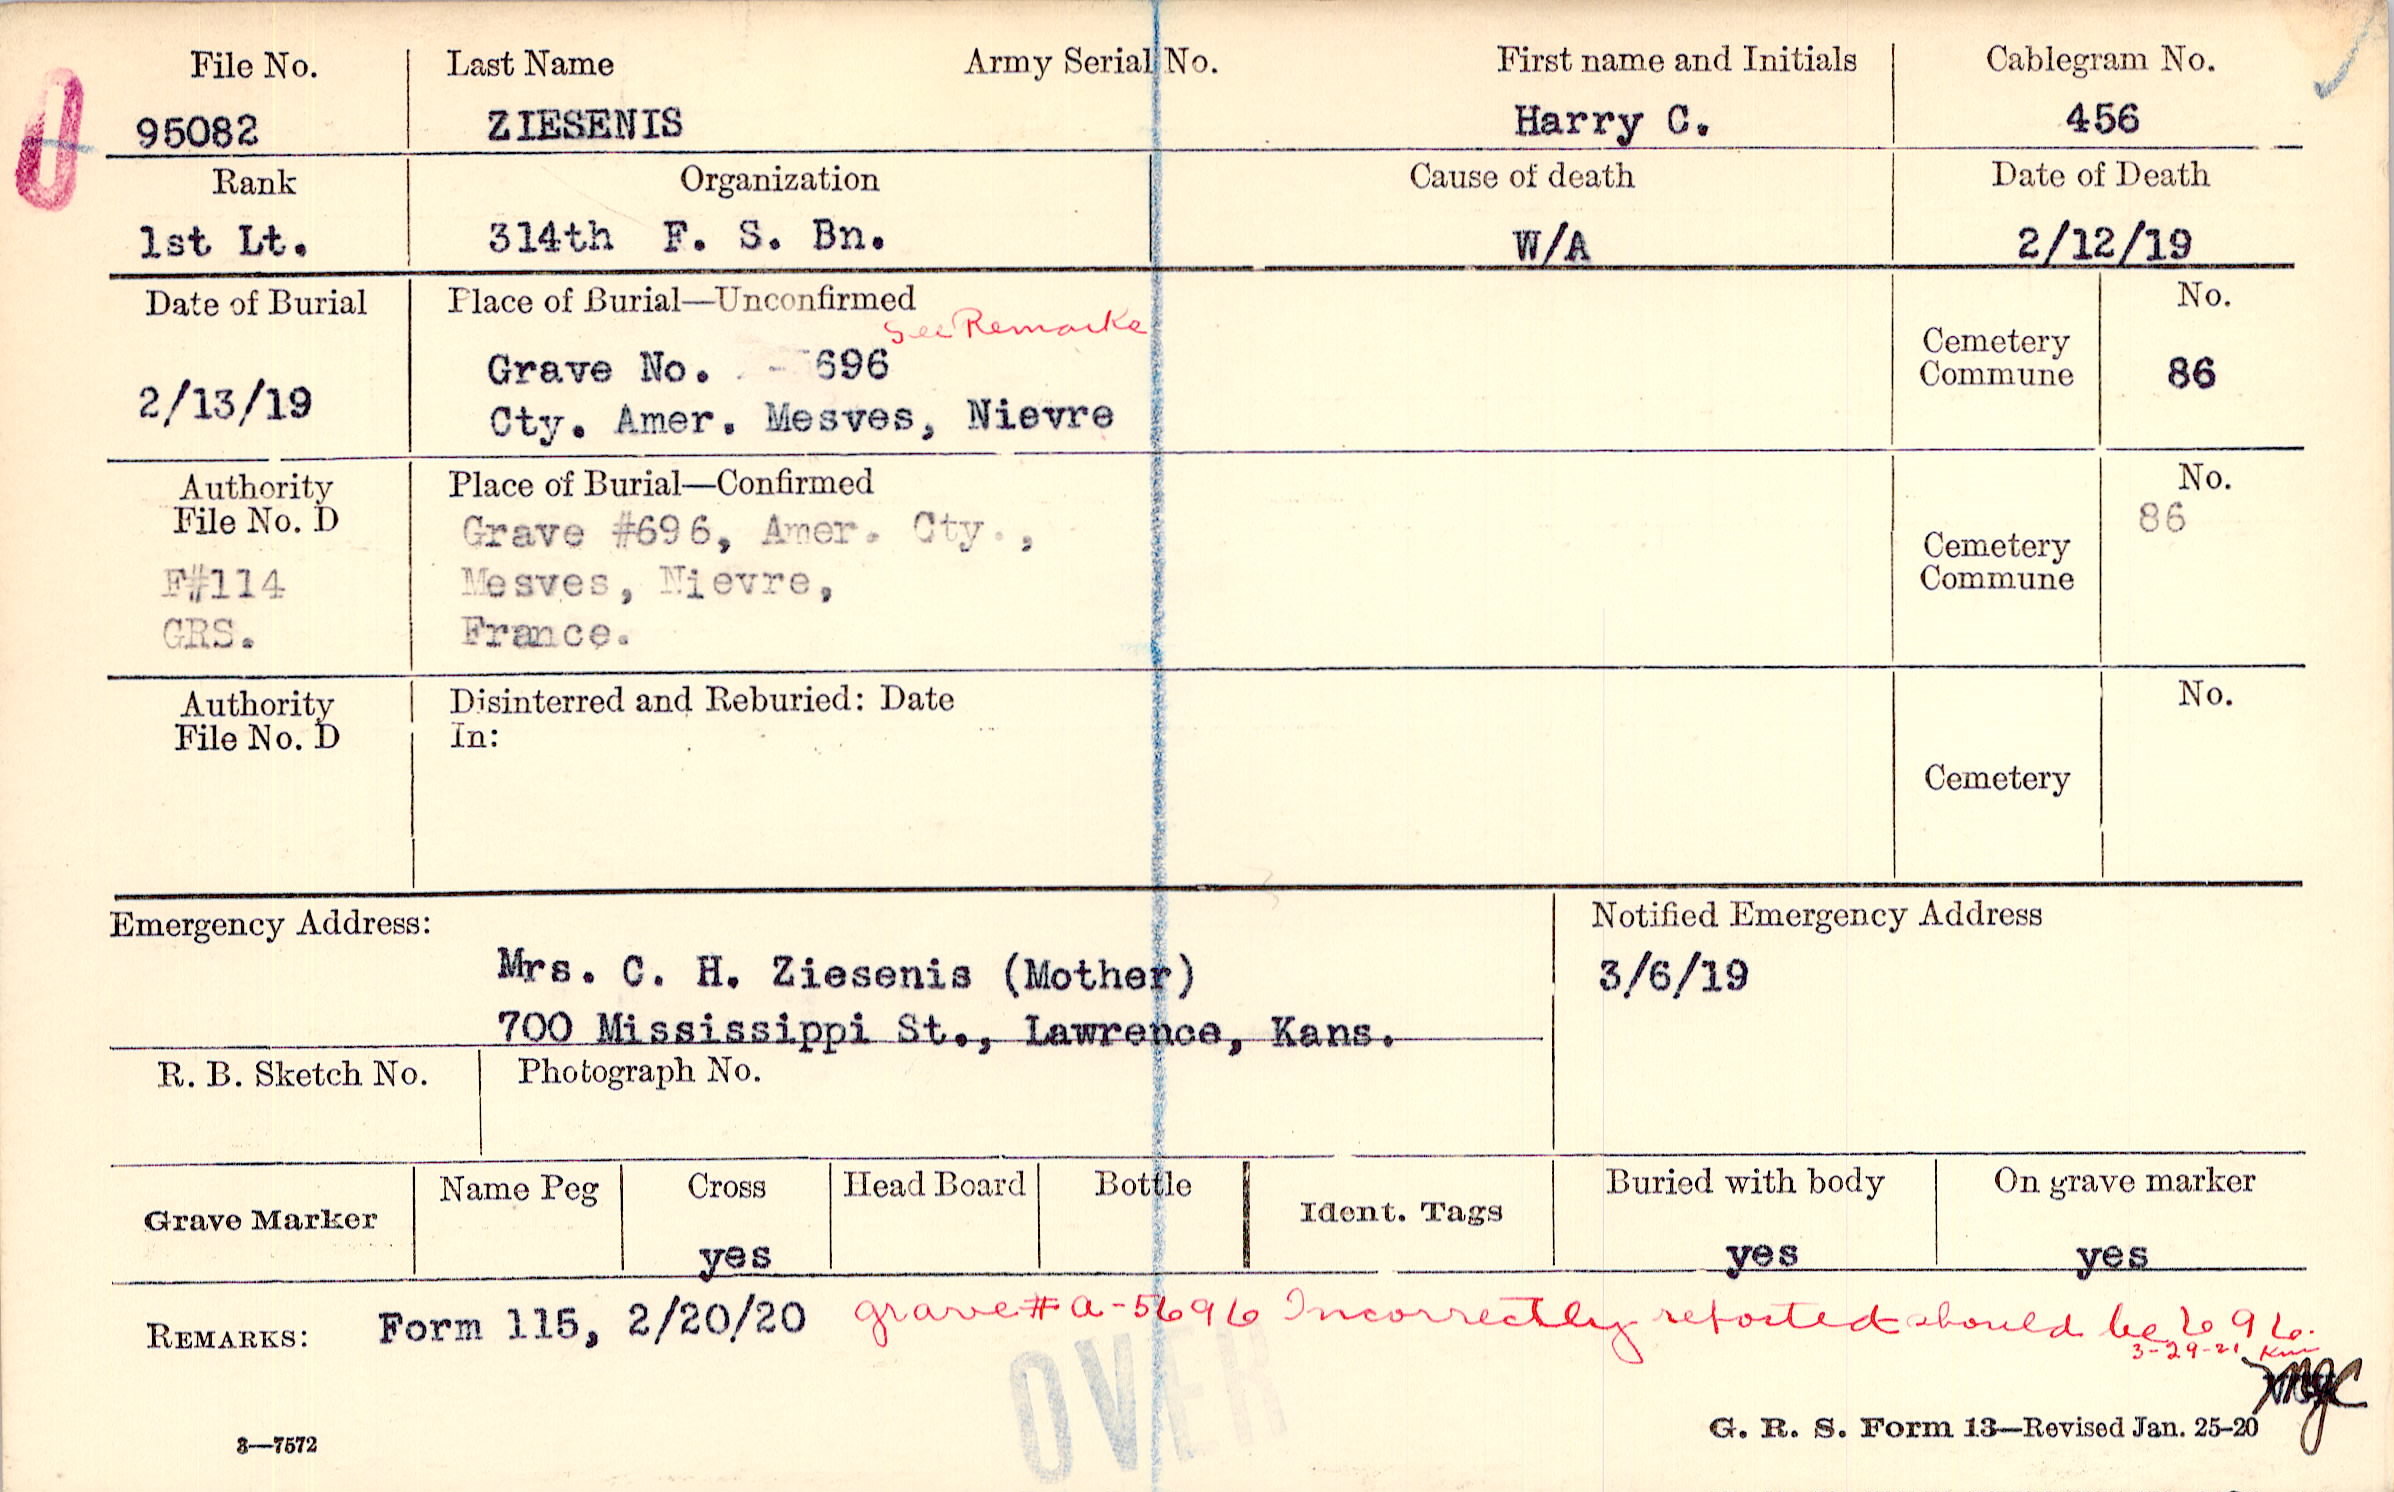 File No. Last Name Army Serial No. First name and Initials Cablegram No.
95082 ZIESENIS Harry C. 456
Rank Organization Cause of death Date of Death
1st Lt. 314th F. S. Bn. W/A 2/12/19
Date of Burial Place of Burial—Unconfirmed No.
See Remarks
Grave No. - 696 Cemetery Commune 86
2/13/19 Cty. Amer. Mesves, Nievre
Authority Place of Burial—Confirmed No.
File No. D Grave #696, Amer. Cty., 86
F#114 Mesves, Nievre, Cemetery Commune
GRS. France.
Authority Disinterred and Reburied: Date No.
File No. D In:
Cemetery
Emergency Address: Notified Emergency Address
Mrs. C. H. Ziesenis (Mother) 3/6/19
700 Mississippi St., Lawrence, Kans.
R. B. Sketch No. Photograph No.
Name Peg Cross Head Board Bottle Buried with body On grave marker
Grave Marker Ident. Tags
yes yes yes
REMARKS: Form 115, 2/20/20 grave # a-5696 Incorrectly reported should be 696.
3-29-21
OVER
3—7572 G. R. S. Form 13—Revised Jan. 25-20